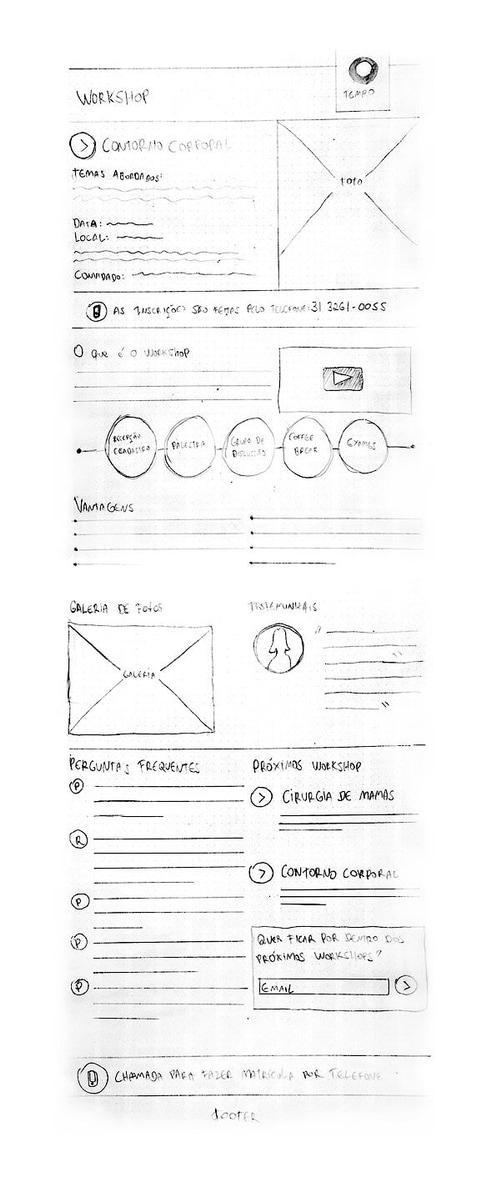 WORKSHOP
TEMPO
CONTORNO CORPORAL
TEMAS ABORDADOS:
FOTO
DATA:
LOCAL:
CONVIDADO:
AS INSCRIÇÕES SÃO FEITAS PELO TELEFONE: 31 3261-0055
O que é o WORKSHOP
RECEPÇÃO
PALESTRA
GRUPO DE
DISCUSSÃO
COFFEE
BREAK
EXAMES
VANTAGENS
GALERIA DE FOTOS
TESTEMUNHAIS
GALERIA
PERGUNTAS FREQUENTES
PRÓXIMOS WORKSHOP
P
CIRURGIA DE MAMAS
R
CONTORNO CORPORAL
P
QUER FICAR POR DENTRO DOS
PRÓXIMOS WORKSHOPS?
P
EMAIL
P
CHAMADA PARA FAZER MATRÍCULA POR TELEFONE
FOOTER